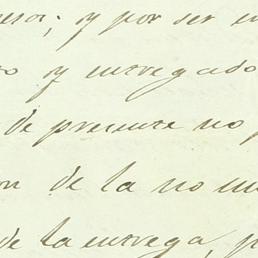 ; y por ser
y entregado
de presente no
de la no
de la entrega,